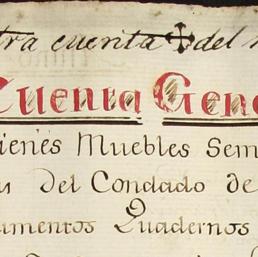 tra cuenta del
Cuenta Gene
ienes Muebles Sem
del Condado de
umentos Quadernos